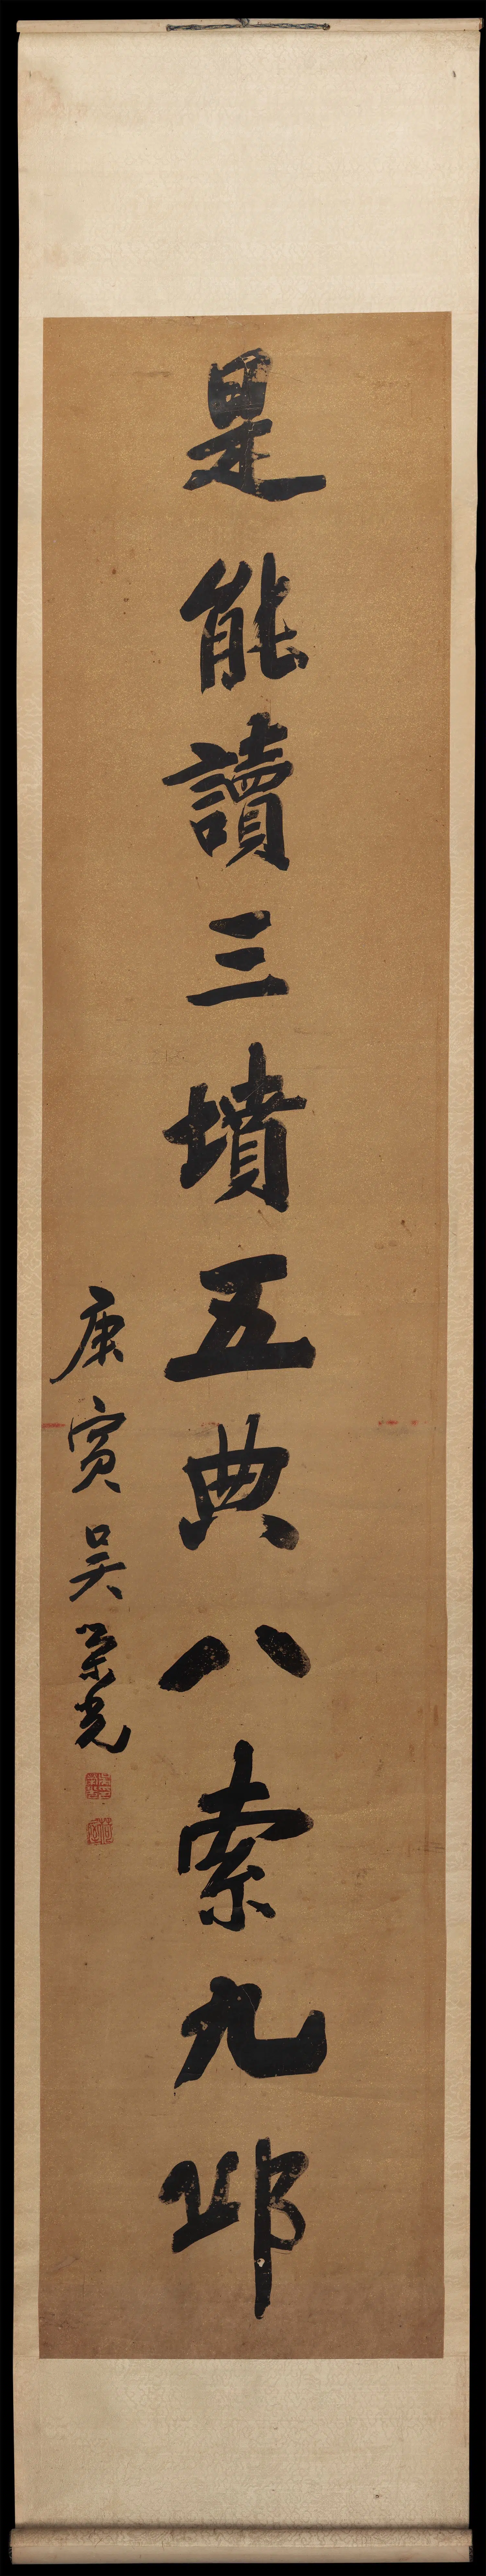 是能讀三墳五典八索九邱
庚寅吳榮光